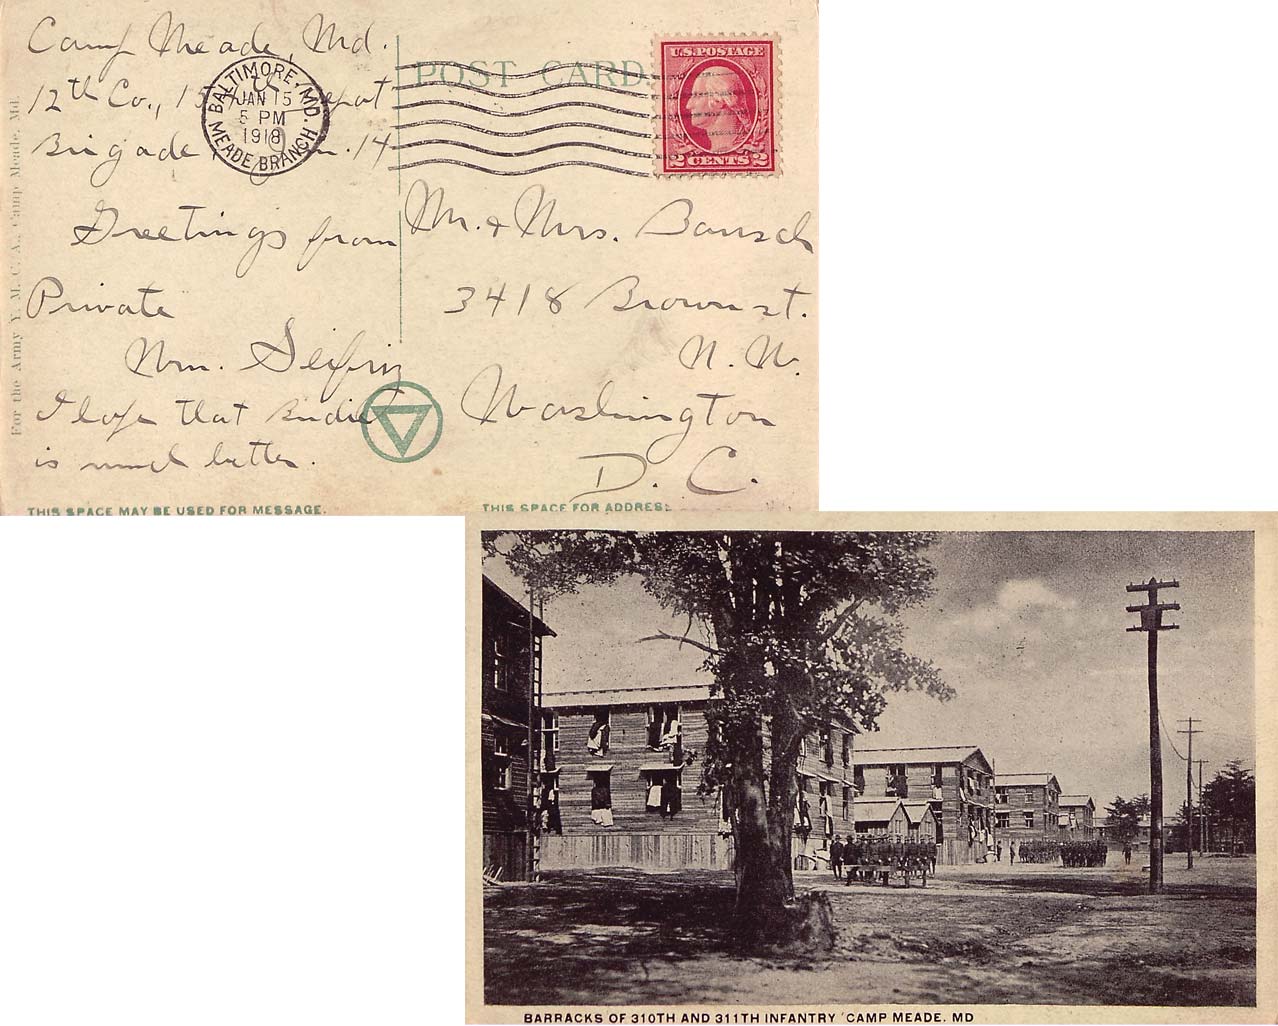 Camp Meade, Md.
12th Co., Depot
Brigade .14
Greetings from
Private
Wm. Seifriz
I hope that
is much better.
THIS SPACE MAY BE USED FOR MESSAGE.
For the Army Y. M. C. A., Camp Meade, Md.
BALTIMORE, MD.
JAN 15
5 PM
1918
MEADE BRANCH
POST CARD
U.S. POSTAGE
2 CENTS 2
Mr. & Mrs. Bausch
3418 Brown st.
N. W.
Washington
D. C.
THIS SPACE FOR ADDRESS
BARRACKS OF 310TH AND 311TH INFANTRY CAMP MEADE. MD